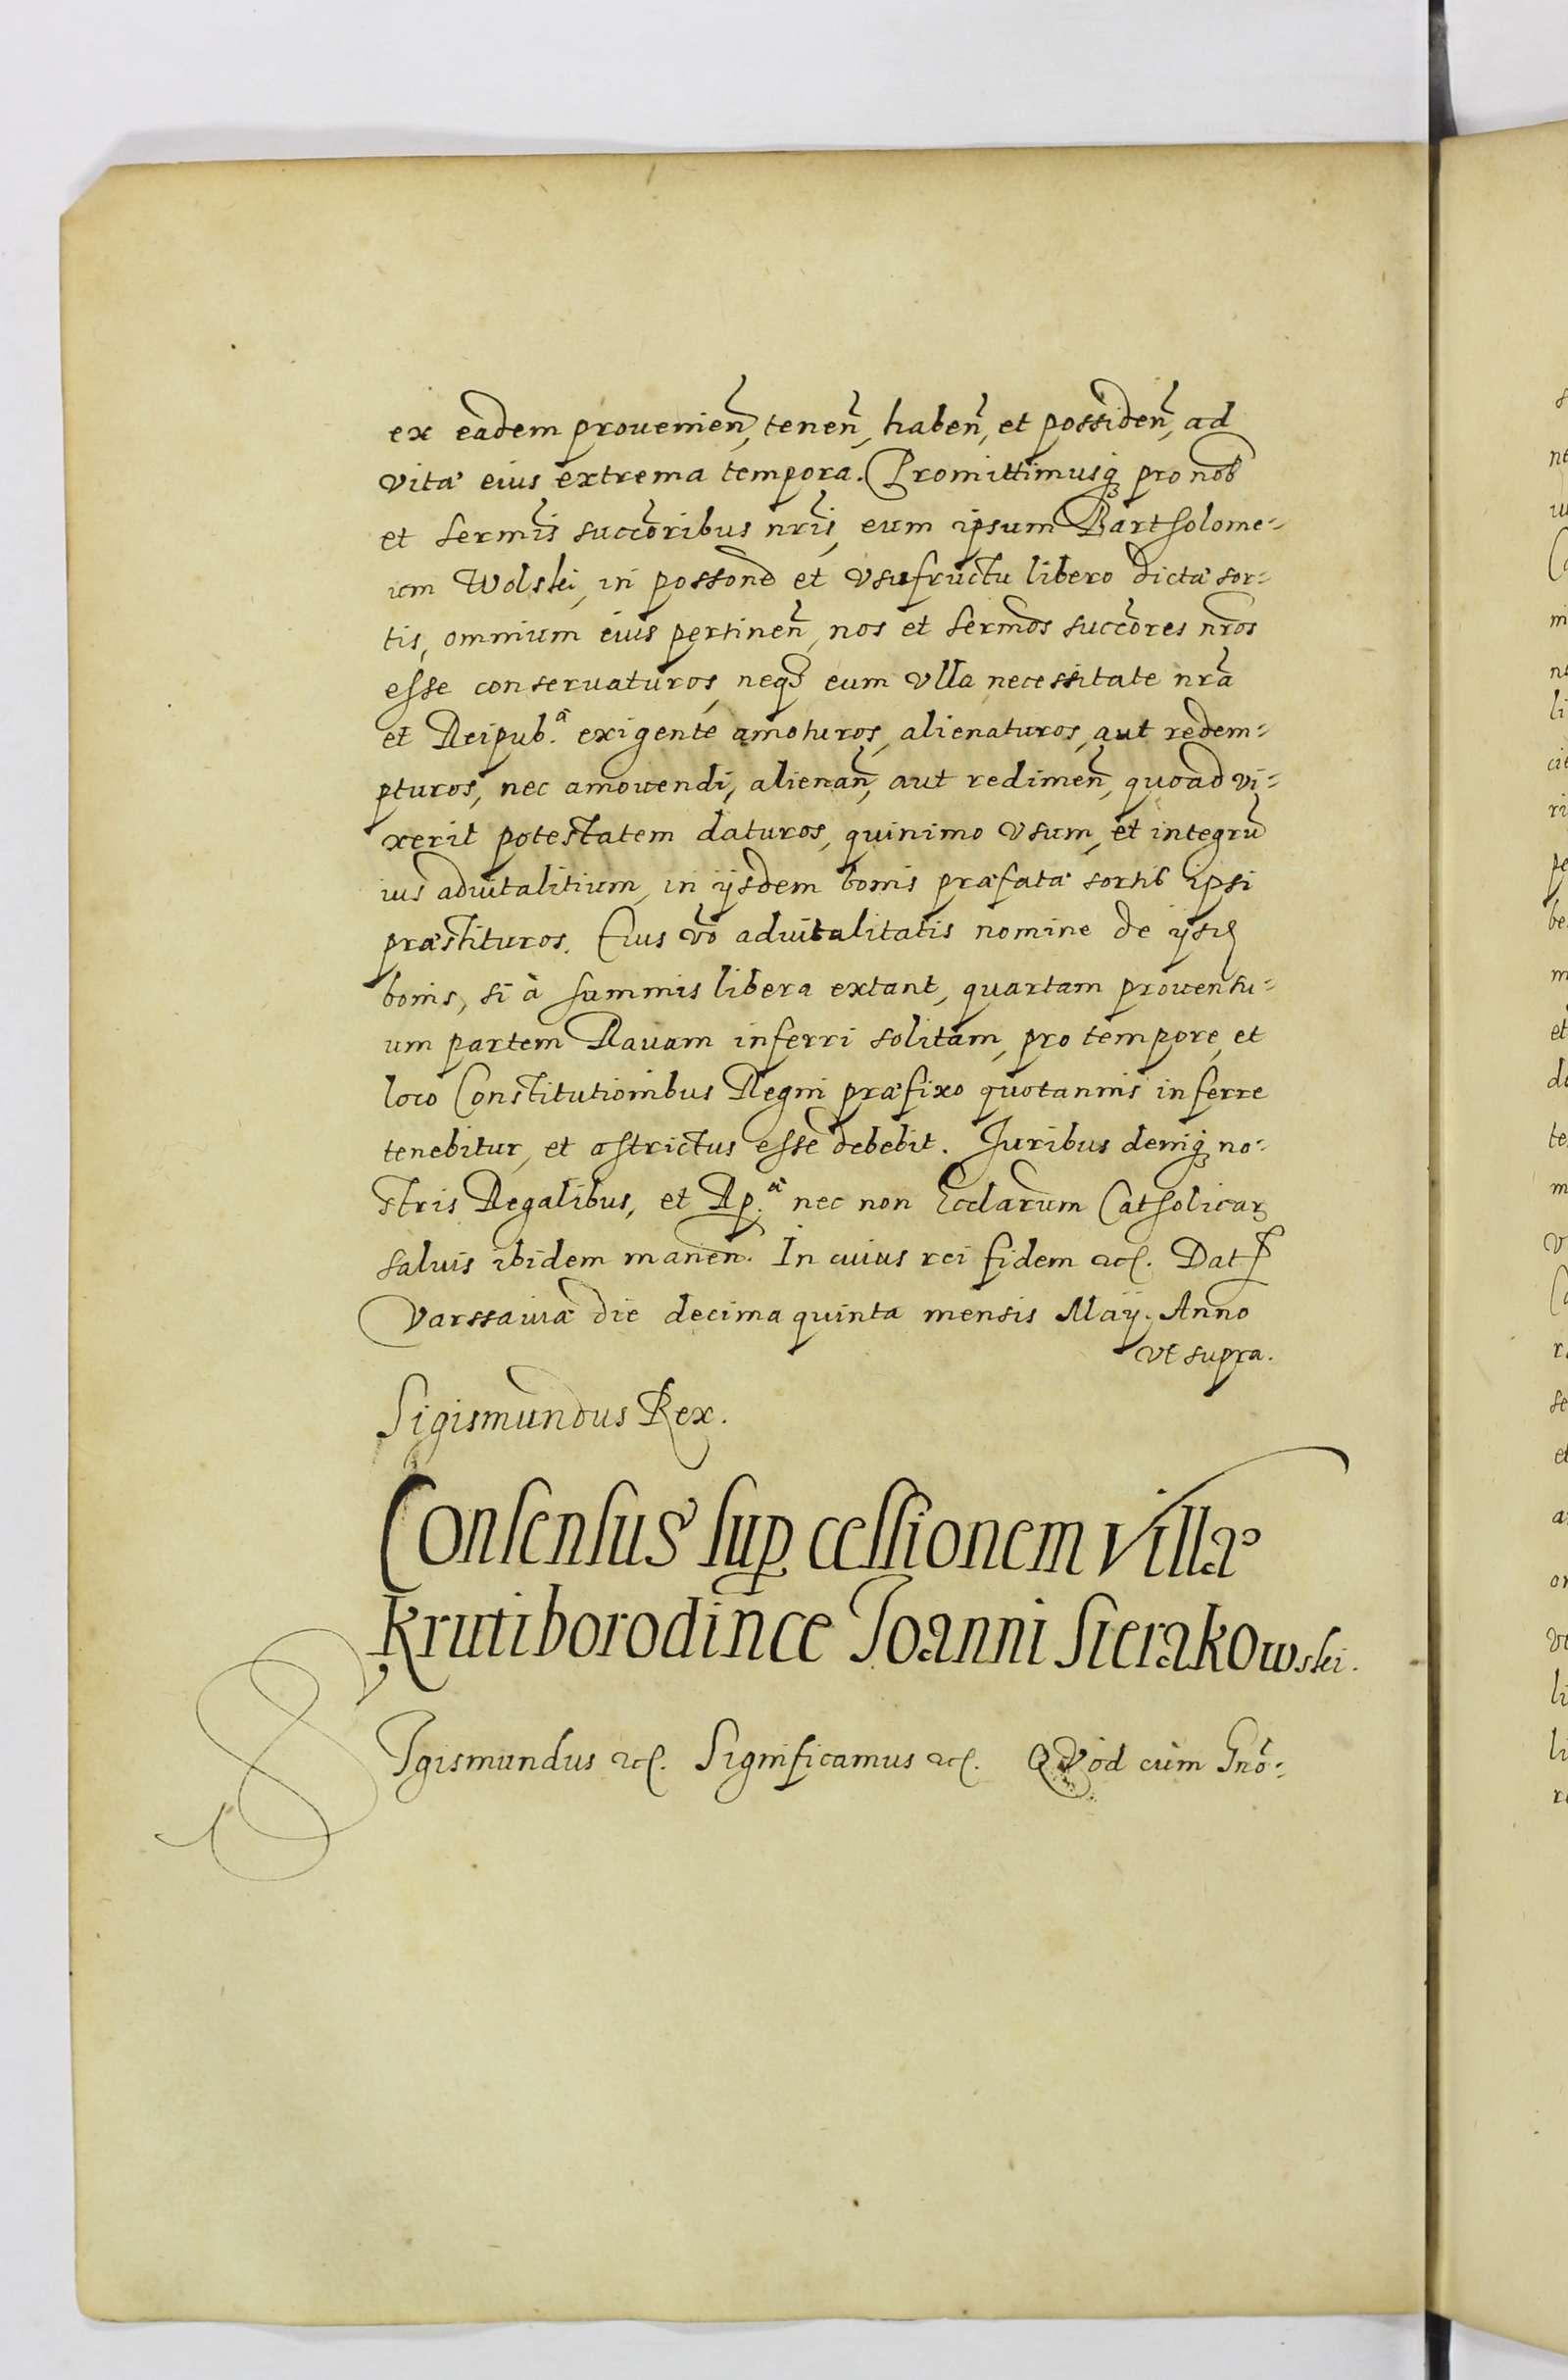 ex eadem prouenien̄, tenen̄, haben̄, et possiden̄, ad
vitæ eius extrema tempora. Promittimusq̃ pro nob
et Sermis̄ succōribus nrīs, eum ipsum Bartholome-
um Wolski, in possone et vsufructu libero dictæ sor-
tis, omnium eius pertinen̄, nos et Sermos̄ succōres nrōs
esse conseruaturos, neq̃ eum vlla necessitate nrā
et Reipub.æ exigente amoturos, alienaturos, aut redem-
pturos, nec amouendi, alienan̄, aut redimen̄, quoad vi-
xerit potestatem daturos, quinimo vsum, et integrū
ius aduitalitium, in ijsdem bonis præfatæ sortis ipsi
præstituros. Eius vō aduitalitatis nomine de ijsd
bonis, si à summis libera extant, quartam prouentu-
um partem Rauam inferri solitam, pro tempore, et
loco Constitutionibus Regni præfixo quotannis inferre
tenebitur, et astrictus esse debebit. Juribus deniq̃ no-
stris Regalibus, et Rp.æ nec non Ecclarum Catholicar
saluis ibidem manen̄. In cuius rei fidem etc. Dat
Varssauiæ die decima quinta mensis Maij. Anno
vt supra.
Sigismundus Rex.
Consensus sup cessionem villæ
Krutiborodince Joanni Sierakowski.
SJgismundus etc. Significamus etc. QVod cùm Gnō-